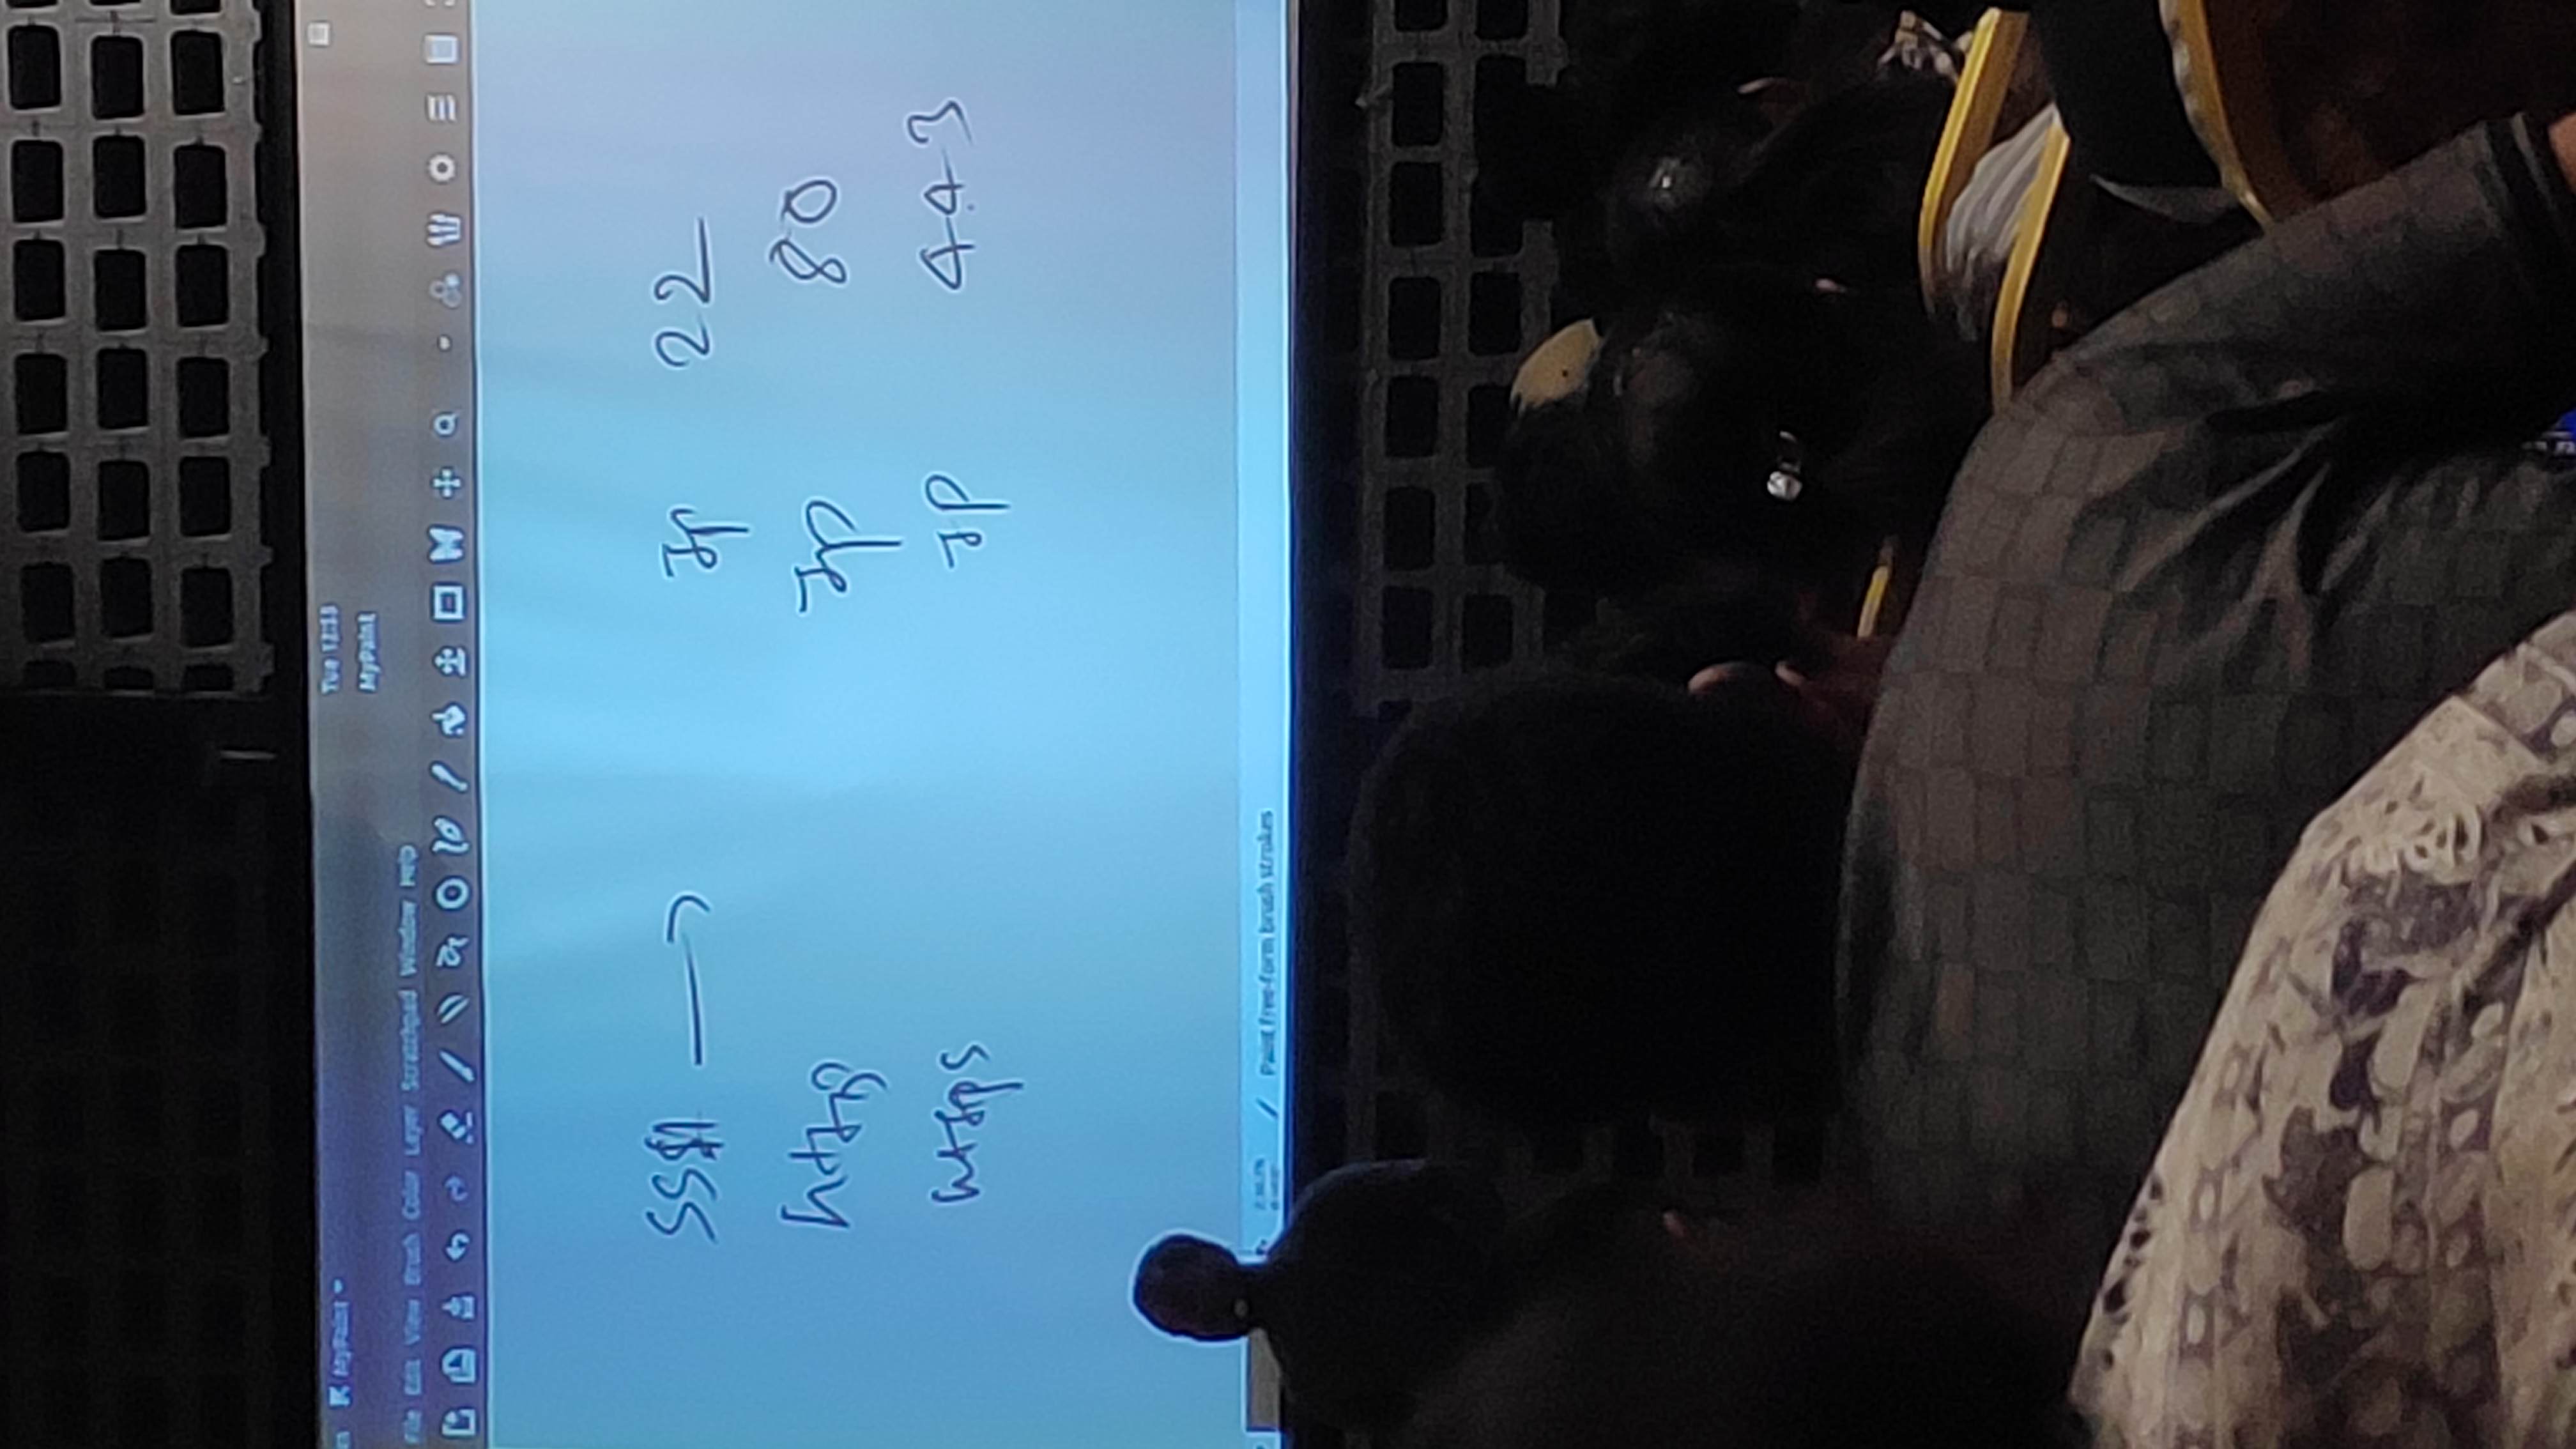 MyPaint
Tue
MyPaint
File Edit View Brush Color Layer Scratchpad Window Help
SSH → Ip 22
http Ip 80
https IP 443
Paint free-form brush strokes